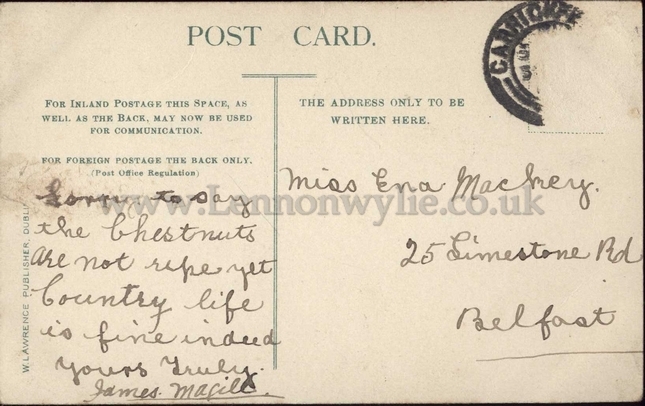 POST CARD.
CARRICK
FOR INLAND POSTAGE THIS SPACE, AS
WELL AS THE BACK, MAY NOW BE USED
FOR COMMUNICATION.
FOR FOREIGN POSTAGE THE BACK ONLY.
(Post Office Regulation)
THE ADDRESS ONLY TO BE
WRITTEN HERE.
W. LAWRENCE PUBLISHER, DUBLIN
Sorry to say
the Chestnuts
are not ripe yet
Country life
is fine indeed
yours truly.
James. Magill.
Miss Ena
25 Limestone Rd
Belfast
www.Lennonwylie.co.uk